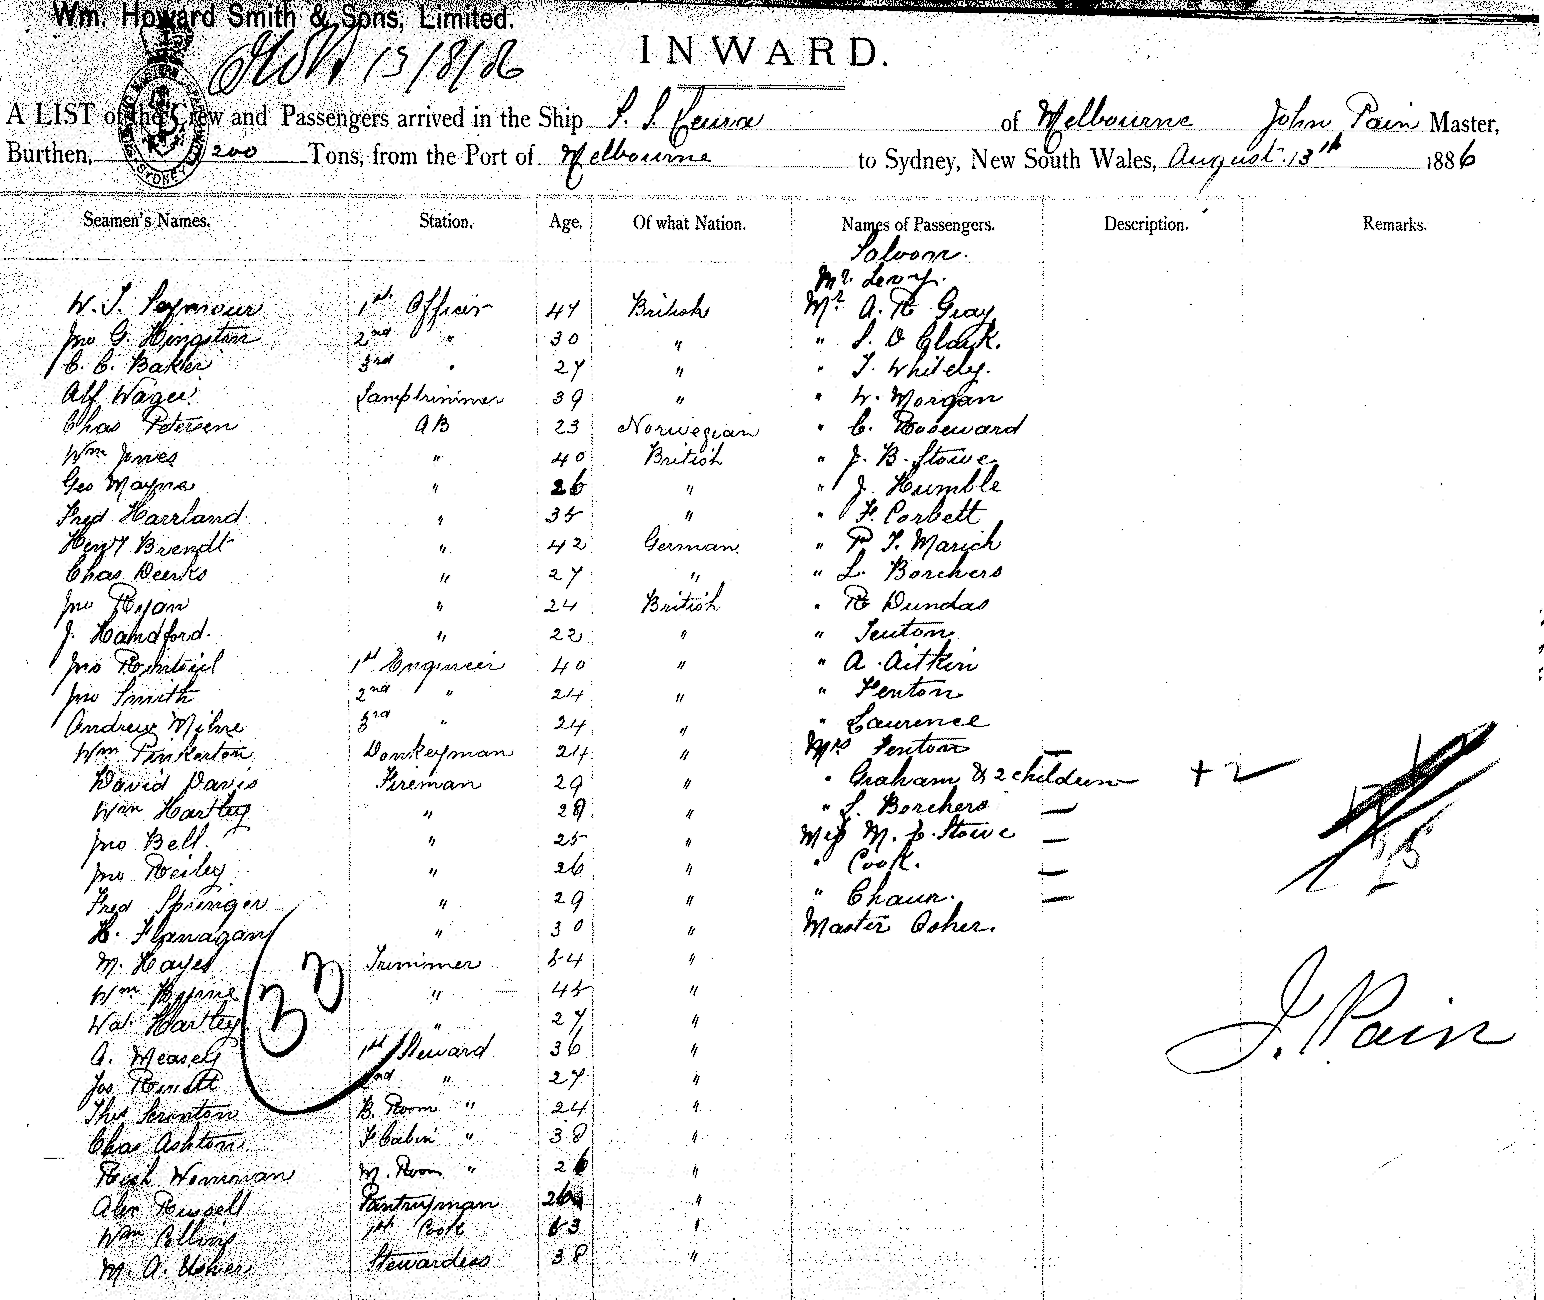 Wm. Howard Smith & Sons, Limited.
13/8/86
INWARD.
A LIST of the Crew and Passengers arrived in the Ship S. S. Leura of Melbourne John Pain Master,
Burthen, 200 Tons, from the Port of Melbourne to Sydney, New South Wales, August 13th 1886
Seamen's Names. Station. Age. Of what Nation. Names of Passengers. Description. Remarks.
Saloon.
Mr. Levy.
W. T. Seymour 1st Officer 47 British Mr. A. R Gray
Jno G. Hingston 2nd " 30 " " S. O Clark.
C. C. Baker 3rd " 27 " " T. Whitely.
Alf Wager Lamptrimmer 39 " " W. Morgan
Chas Petersen AB 23 Norwegian " C. Roseward
Wm Jones " 40 British " J. B. Stowe
Geo Mayne " 26 " " J. Humble
Fred Harrland " 35 " " F. Corbett
Heny Brendt " 42 German " P. T. Marich
Chas Deerks " 27 " " L. Borchers
Jno Ryan " 24 British " R Dundas
J. Handford. " 22 " " Senton
Jno 1st Engineer 40 " " A. Aitkin
Jno Smith 2nd " 24 " " Fenton
Andrew Milne 3rd " 24 " " Laurence
Wm Pinkerton Donkeyman 24 " Mrs Fenton —
David Davis Fireman 29 " " Graham & 2 children + 2
Wm Hartley " 29 " " L. Borchers —
Jno Bell. " 25 " Miss M. L. Stowe —
Jno Reiley " 26 " " Cook. —
Fred Springer " 29 " " —
H. Flanagan " 30 " Master Osher.
M. Hayes Trimmer 54 "
Wm Byrne " 45 "
Wal. Hartley " 27 "
33
A. Measey 1st Steward 36 "
Jos 2nd " 27 "
Thos Scrinton B. Room " 24 "
Chas Ashton F Cabin " 38 "
Rich Wenman M. Room " 26 "
Alex Russell Pantryman 26 "
Wm Collins 1st Cook 53 "
M. A. Usher Stewardess 38 "
J. Pain